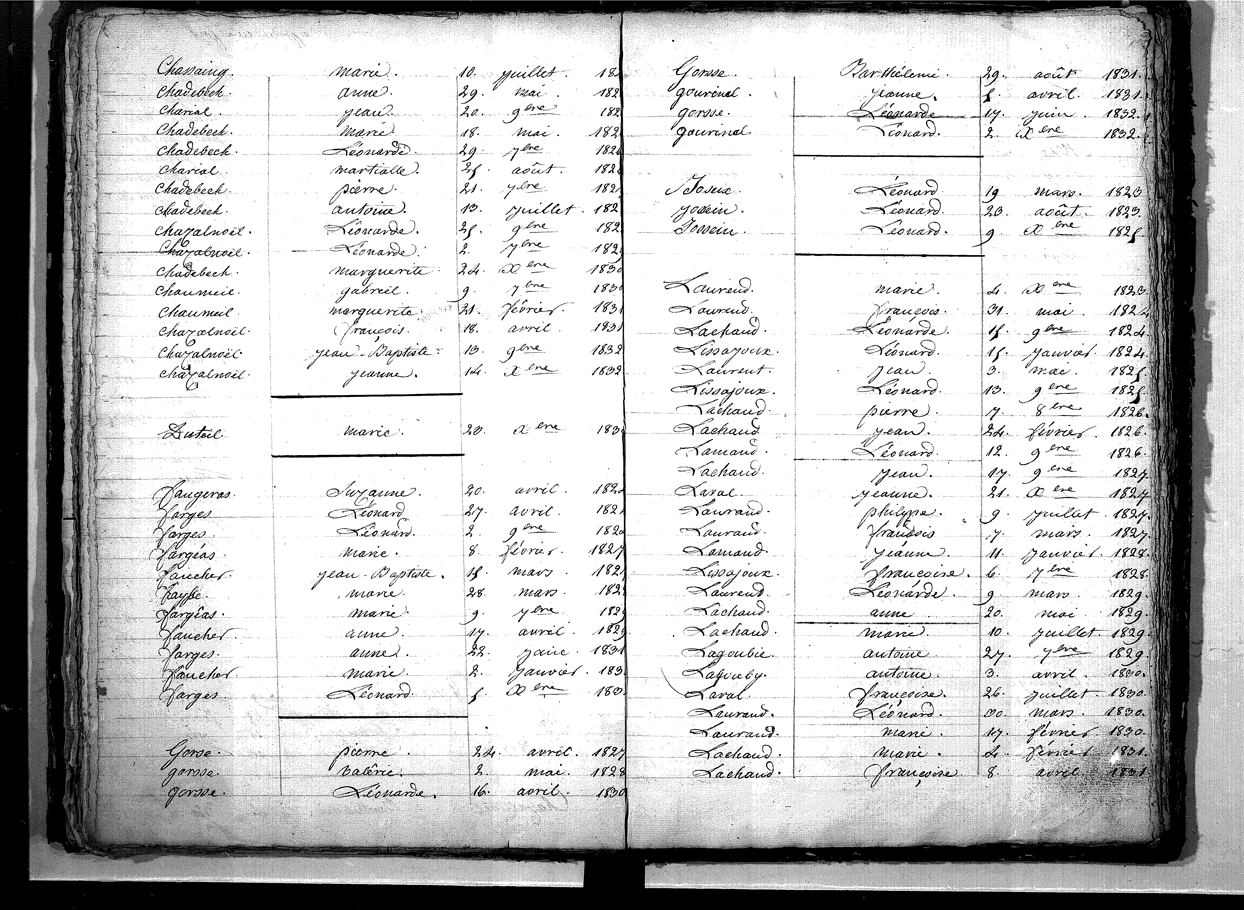 Chassaing. marie. 10. juillet. 182
Chadebech. anne. 29. mai. 182
Charial. jean. 20. 9bre 182
Chadebech. marie. 18. mai. 182
Chadebeck. Léonarde. 29. 7bre 182
Charial. martialle. 25. août. 182
Chadebeck. pierre. 21. 7bre 182
Chadebeck. antoine. 13. juillet. 182
Chazalnoël. Léonarde. 25. 9bre 182
Chazalnoël. Léonarde. 2. 7bre 182
Chadebech. marguerite. 24. Xbre 1830
Chaumeil. gabreil. 9. 7bre 1830
Chaumeil. marguerite. 21. février. 1831
Chazalnoël. françois. 18. avril. 1831
Chazalnoël. jean-Baptiste. 13. 9bre 1832
Chazalnoël. jeanne. 14. Xbre 1832
Duteil. marie. 20. Xbre 183
faugeras. Suzanne. 20. avril. 182
farges. Léonard. 27. avril. 182
farges. Léonard. 2. 9bre 182
fargéas. marie. 8. février. 1827
faucher. jean-Baptiste. 15. mars. 182
faybe. marie. 28. mars. 182
fargéas. marie. 9. 7bre 182
faucher. anne. 17. avril. 1829
farges. anne. 22. juin. 1831
faucher. marie. 2. janvier. 183
farges. Léonard. 5. Xbre 183
Gorse. pierre. 24. avril. 1827
gorsse. valérie. 2. mai. 1828
gorsse. Léonarde. 16. avril. 1830
Gorsse. Barthélemi. 29. août 1831.
gourinal. jeanne. 5. avril. 1831.
gorsse. Léonarde 17. juin. 1832.
gourinal. Léonard. 2. Xbre 1832.
Joseix. Léonard 19. mars. 1823
jossein. Léonard. 23. août. 1823.
Jossein. Léonard. 9. Xbre 1825
Laurend. marie. 4. Xbre 1823.
Laurend. françois. 31. mai. 1824
Lachaud. Léonarde. 15. 9bre 1824.
Lissajoux. Léonard. 15. janvier. 1824.
Laurent. jean. 3. mai. 1825.
Lissajoux. Léonard. 13. 9bre 1825.
Lachaud. pierre. 7. 8bre 1826.
Lachaud. jean. 24. février. 1826.
Lamaud. Léonard. 12. 9bre 1826.
Lachaud. jean. 17. 9bre 1827.
Laval. jeanne. 21. Xbre 1827
Laurand. philippe. 9. juillet. 1827.
Laurand. françois 7. mars. 1827.
Lamaud. jeanne. 11. janvier. 1828.
Lissajoux. françoise. 6. 7bre 1828.
Laurend. Léonarde. 9. mars. 1829.
Lachaud. anne 20. mai 1829.
Lachaud. marie. 10. juillet. 1829.
Lagoubie. antoine 27. 7bre 1829.
Lagouby. antoine. 3. avril. 1830.
Laval. françoise. 26. juillet. 1830.
Laurand. Léonard. 30. mars. 1830.
Laurand. marie. 17. février. 1830.
Lachaud. marie. 4. février. 1831.
Lachaud. françoise 8. avril. 1831.